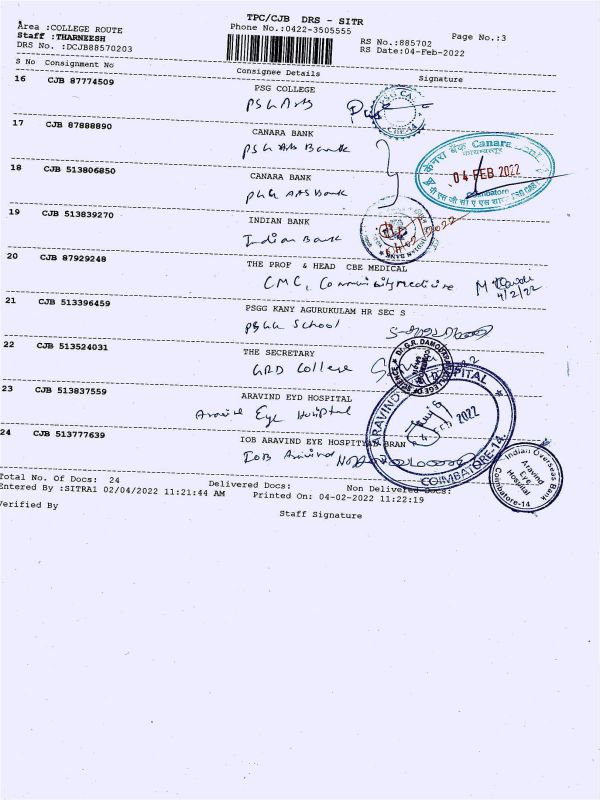 TPC/CJB DRS - SITR
Area :COLLEGE ROUTE
Phone No.:0422-3505555
Page No.:3
Staff :THARNEESH
RS No.:885702
DRS No. :DCJB88570203
RS Date:04-Feb-2022
S No Consignment No Consignee Details Signature
16 CJB 87774509 PSG COLLEGE
PSG Arts
PSG CA
17 CJB 87888890 CANARA BANK
PSG Arts Bank
केनरा बैंक Canara
04 FEB 2022
Coimbatore
18 CJB 513806850 CANARA BANK
PSG Arts Bank
19 CJB 513839270 INDIAN BANK
Indian Bank
20 CJB 87929248 THE PROF & HEAD CBE MEDICAL
CMC, Community Medicine
4/2/22
21 CJB 513396459 PSGG KANY AGURUKULAM HR SEC S
PSGG School
22 CJB 513524031 THE SECRETARY
GRD College
Dr.G.R. DAMODARAN COLLEGE OF SCIENCE
23 CJB 513837559 ARAVIND EYD HOSPITAL
Aravind Eye Hospital
ARAVIND HOSPITAL
4 Feb 2022
COIMBATORE-14.
24 CJB 513777639 IOB ARAVIND EYE HOSPITYAD BRAN
IOB Aravind
Indian Overseas Bank
Aravind
Eye
Hospital
Coimbatore-14
Total No. Of Docs: 24 Delivered Docs: Non Delivered Docs:
Entered By :SITRA1 02/04/2022 11:21:44 AM Printed On: 04-02-2022 11:22:19
Verified By
Staff Signature